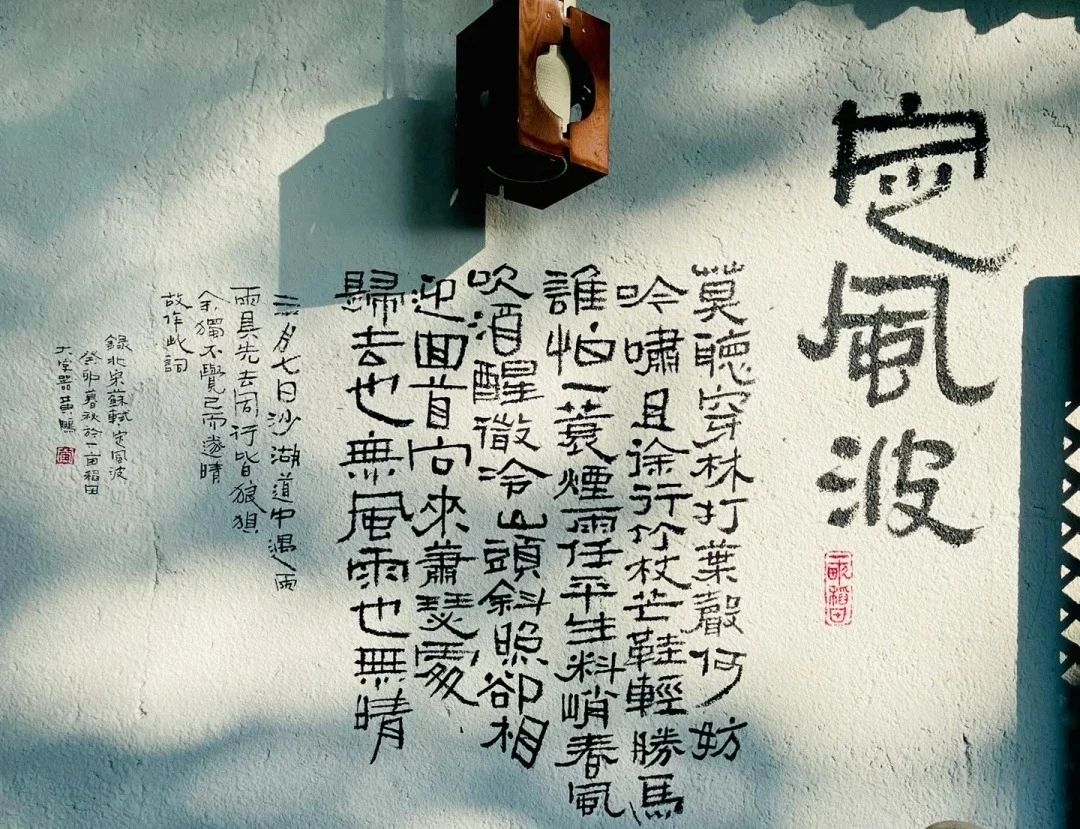 定風波
一畝稻田
莫聽穿林打葉聲何妨
吟嘯且徐行竹杖芒鞋輕勝馬
誰怕一蓑煙雨任平生料峭春風
吹酒醒微冷山頭斜照卻相
迎回首向來蕭瑟處
歸去也無風雨也無晴
三月七日沙湖道中遇雨
雨具先去同行皆狼狽
余獨不覺已而遂晴
故作此詞
錄北宋蘇軾定風波
癸卯暮秋於一亩稻田